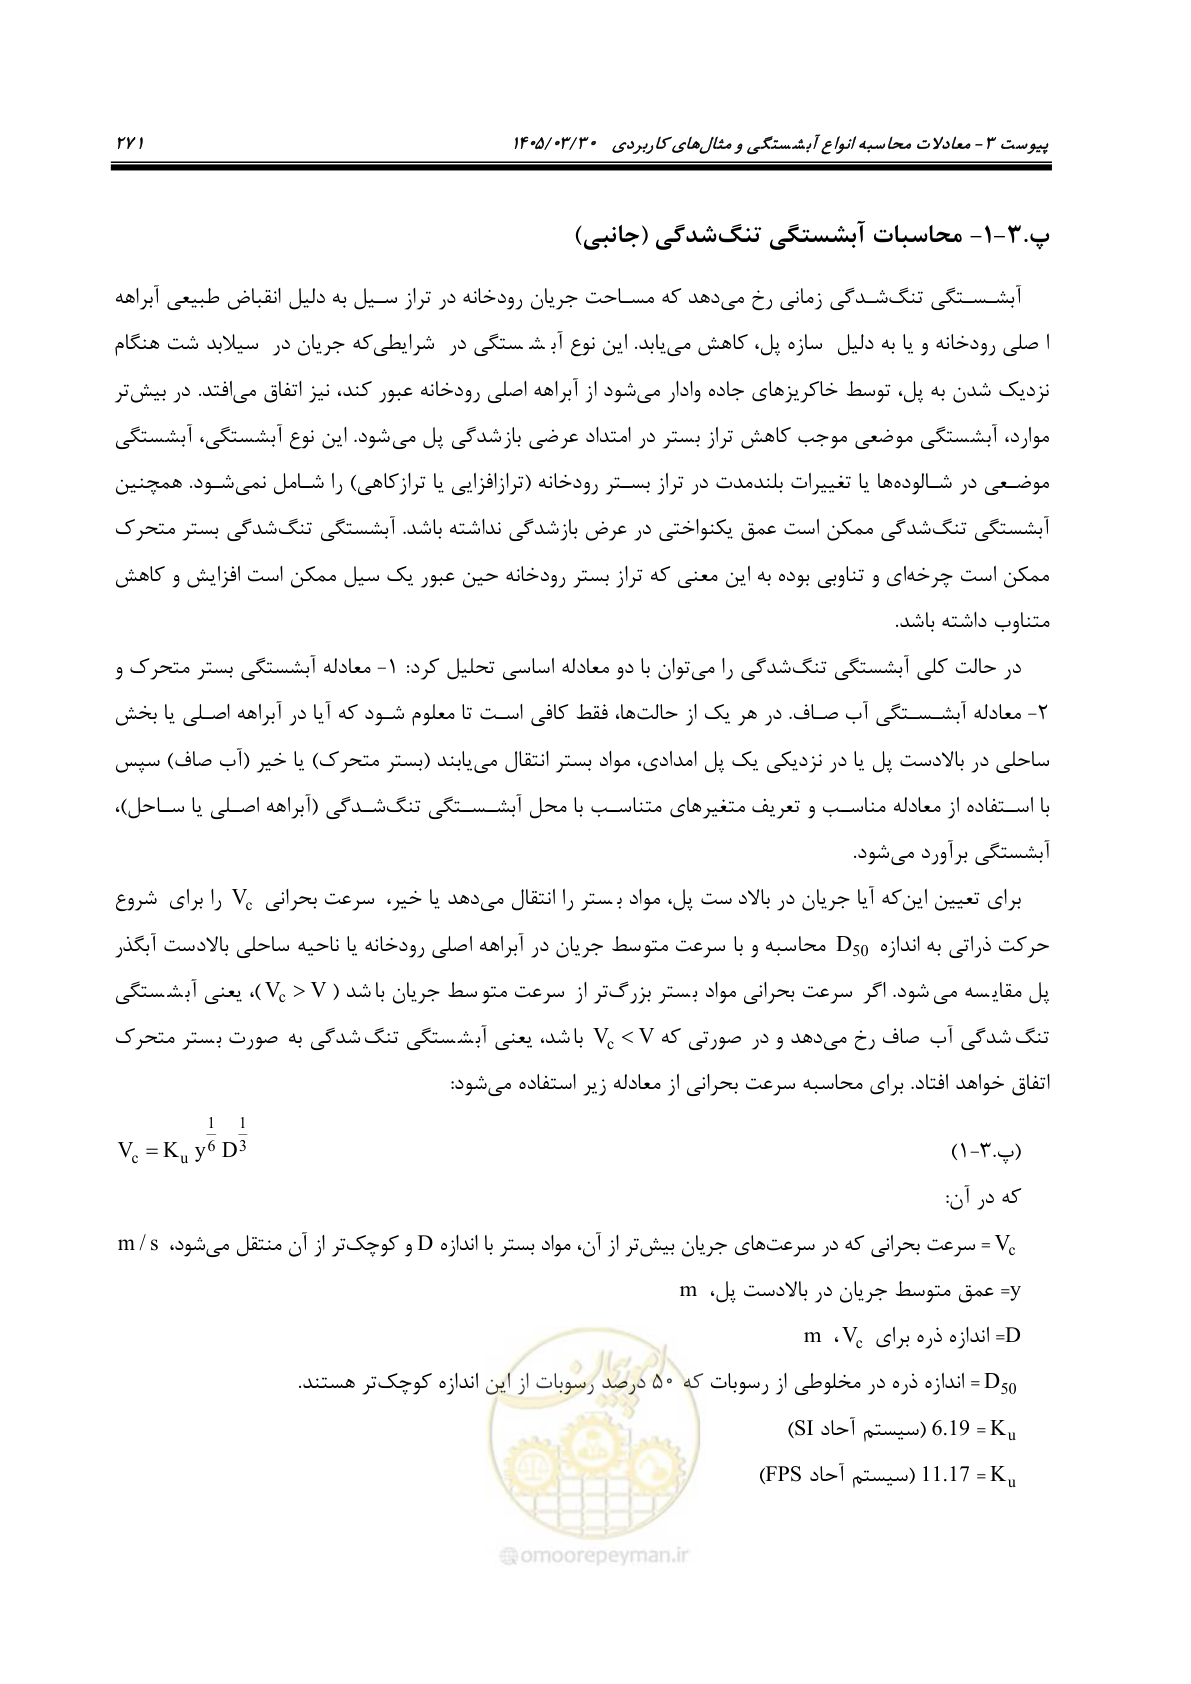 پیوست ۳- معادلات محاسبه انواع آبشستگی و مثال‌های کاربردی ۱۴۰۵/۰۳/۳۰ ۲۷۱
پ.۳-۱- محاسبات آبشستگی تنگ‌شدگی (جانبی)
آبشستگی تنگ‌شدگی زمانی رخ می‌دهد که مساحت جریان رودخانه در تراز سیل به دلیل انقباض طبیعی آبراهه
اصلی رودخانه و یا به دلیل سازه پل، کاهش می‌یابد. این نوع آبشستگی در شرایطی‌که جریان در سیلابدشت هنگام
نزدیک شدن به پل، توسط خاکریزهای جاده وادار می‌شود از آبراهه اصلی رودخانه عبور کند، نیز اتفاق می‌افتد. در بیش‌تر
موارد، آبشستگی موضعی موجب کاهش تراز بستر در امتداد عرضی بازشدگی پل می‌شود. این نوع آبشستگی، آبشستگی
موضعی در شالوده‌ها یا تغییرات بلندمدت در تراز بستر رودخانه (ترازافزایی یا ترازکاهی) را شامل نمی‌شود. همچنین
آبشستگی تنگ‌شدگی ممکن است عمق یکنواختی در عرض بازشدگی نداشته باشد. آبشستگی تنگ‌شدگی بستر متحرک
ممکن است چرخه‌ای و تناوبی بوده به این معنی که تراز بستر رودخانه حین عبور یک سیل ممکن است افزایش و کاهش
متناوب داشته باشد.
در حالت کلی آبشستگی تنگ‌شدگی را می‌توان با دو معادله اساسی تحلیل کرد: ۱- معادله آبشستگی بستر متحرک و
۲- معادله آبشستگی آب صاف. در هر یک از حالت‌ها، فقط کافی است تا معلوم شود که آیا در آبراهه اصلی یا بخش
ساحلی در بالادست پل یا در نزدیکی یک پل امدادی، مواد بستر انتقال می‌یابند (بستر متحرک) یا خیر (آب صاف) سپس
با استفاده از معادله مناسب و تعریف متغیرهای متناسب با محل آبشستگی تنگ‌شدگی (آبراهه اصلی یا ساحل)،
آبشستگی برآورد می‌شود.
برای تعیین این‌که آیا جریان در بالادست پل، مواد بستر را انتقال می‌دهد یا خیر، سرعت بحرانی Vc را برای شروع
حرکت ذراتی به اندازه D50 محاسبه و با سرعت متوسط جریان در آبراهه اصلی رودخانه یا ناحیه ساحلی بالادست آبگذر
پل مقایسه می‌شود. اگر سرعت بحرانی مواد بستر بزرگ‌تر از سرعت متوسط جریان باشد (Vc > V)، یعنی آبشستگی
تنگ‌شدگی آب صاف رخ می‌دهد و در صورتی که Vc < V باشد، یعنی آبشستگی تنگ‌شدگی به صورت بستر متحرک
اتفاق خواهد افتاد. برای محاسبه سرعت بحرانی از معادله زیر استفاده می‌شود:
(پ.۳-۱) Vc = Ku y^(1/6) D^(1/3)
که در آن:
Vc = سرعت بحرانی که در سرعت‌های جریان بیش‌تر از آن، مواد بستر با اندازه D و کوچک‌تر از آن منتقل می‌شود، m / s
y= عمق متوسط جریان در بالادست پل، m
D= اندازه ذره برای Vc، m
D50 = اندازه ذره در مخلوطی از رسوبات که ۵۰ درصد رسوبات از این اندازه کوچک‌تر هستند.
Ku = 6.19 (سیستم آحاد SI)
Ku = 11.17 (سیستم آحاد FPS)
امور پیمان
@omoorepeyman.ir